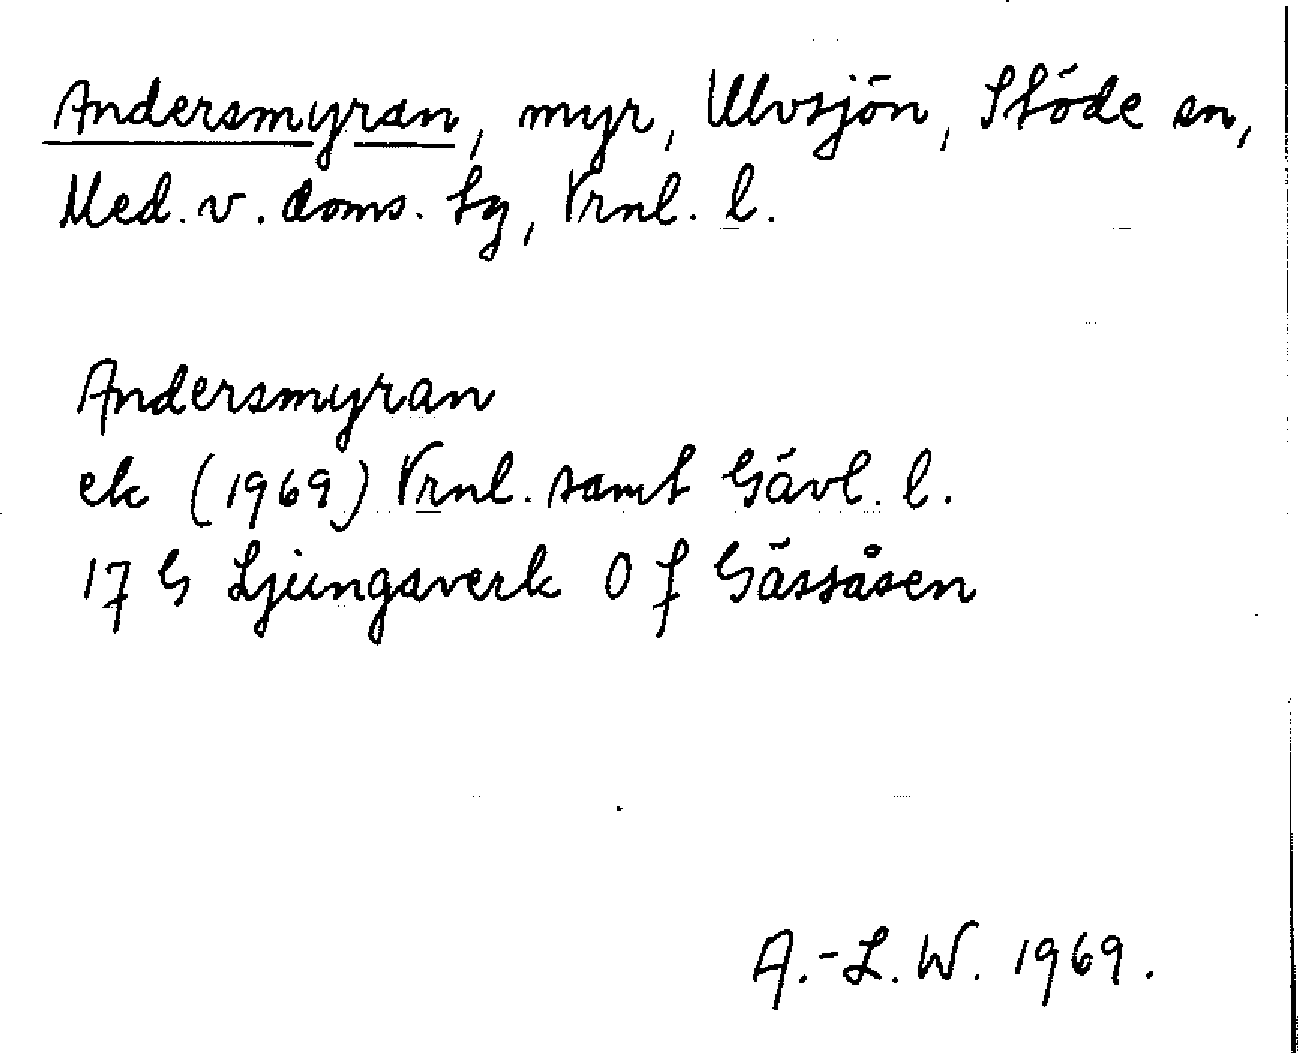 Andersmyran, myr, Ulvsjön, Stöde sn,
Med. v. doms. tg, Vrnl. l.
Andersmyran
ek (1969) Vrnl. samt Gävl. l.
17 G Ljungaverk 0 f Gässåsen
A.-L. W. 1969.